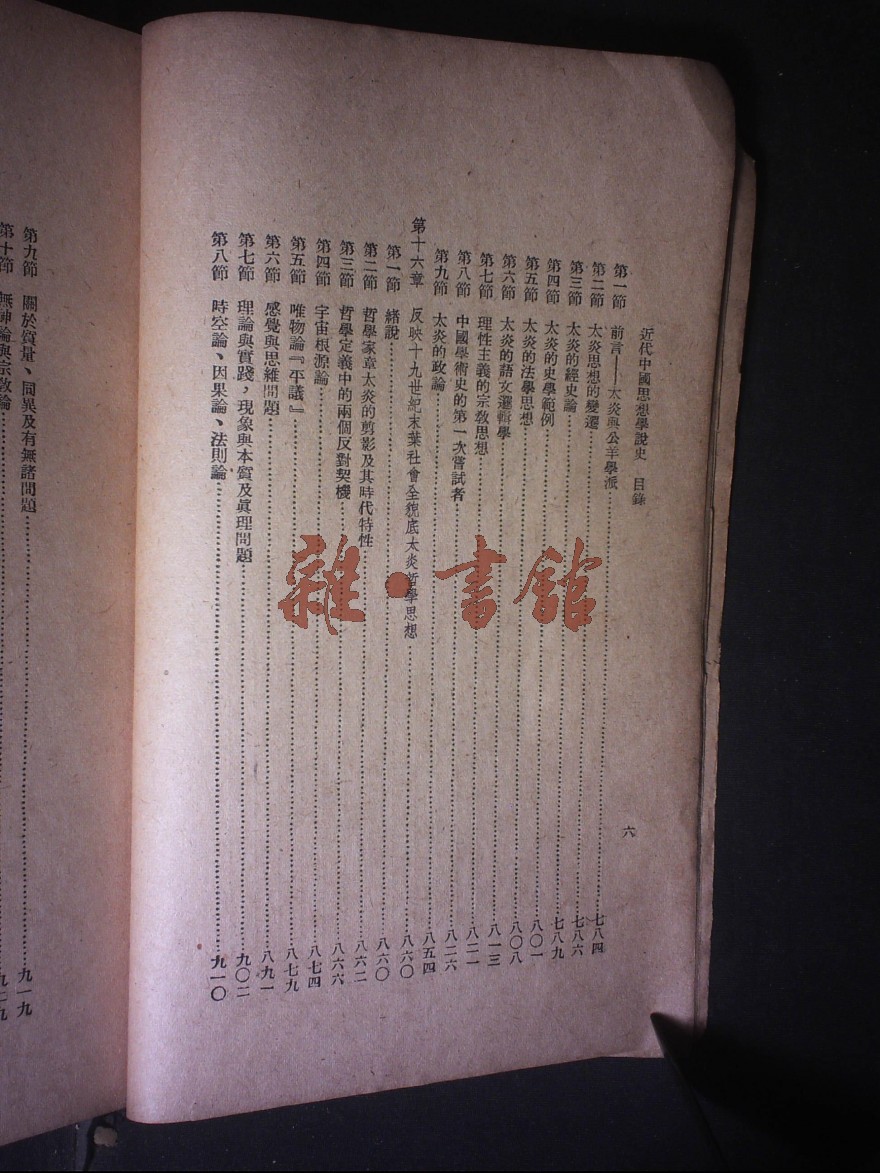 近代中國思想學說史　目錄
六
第一節　前言——太炎與公羊學派……七八四
第二節　太炎思想的變遷……七八六
第三節　太炎的經史論……七八九
第四節　太炎的史學範例……八〇一
第五節　太炎的法學思想……八〇八
第六節　太炎的語文邏輯學……八一三
第七節　理性主義的宗敎思想……八二一
第八節　中國學術史的第一次嘗試者……八二六
第九節　太炎的政論……八五四
第十六章　反映十九世紀末葉社會全貌底太炎哲學思想……八六〇
第一節　緒說……八六〇
第二節　哲學家章太炎的剪影及其時代特性……八六二
第三節　哲學定義中的兩個反對契機……八六六
第四節　宇宙根源論……八七四
第五節　唯物論『平議』……八七九
第六節　感覺與思維問題……八九一
第七節　理論與實踐，現象與本質及眞理問題……九〇二
第八節　時空論、因果論、法則論……九一〇
第九節　關於質量、同異及有無諸問題……九一九
第十節　無神論與宗敎論……九二九
雜·書館